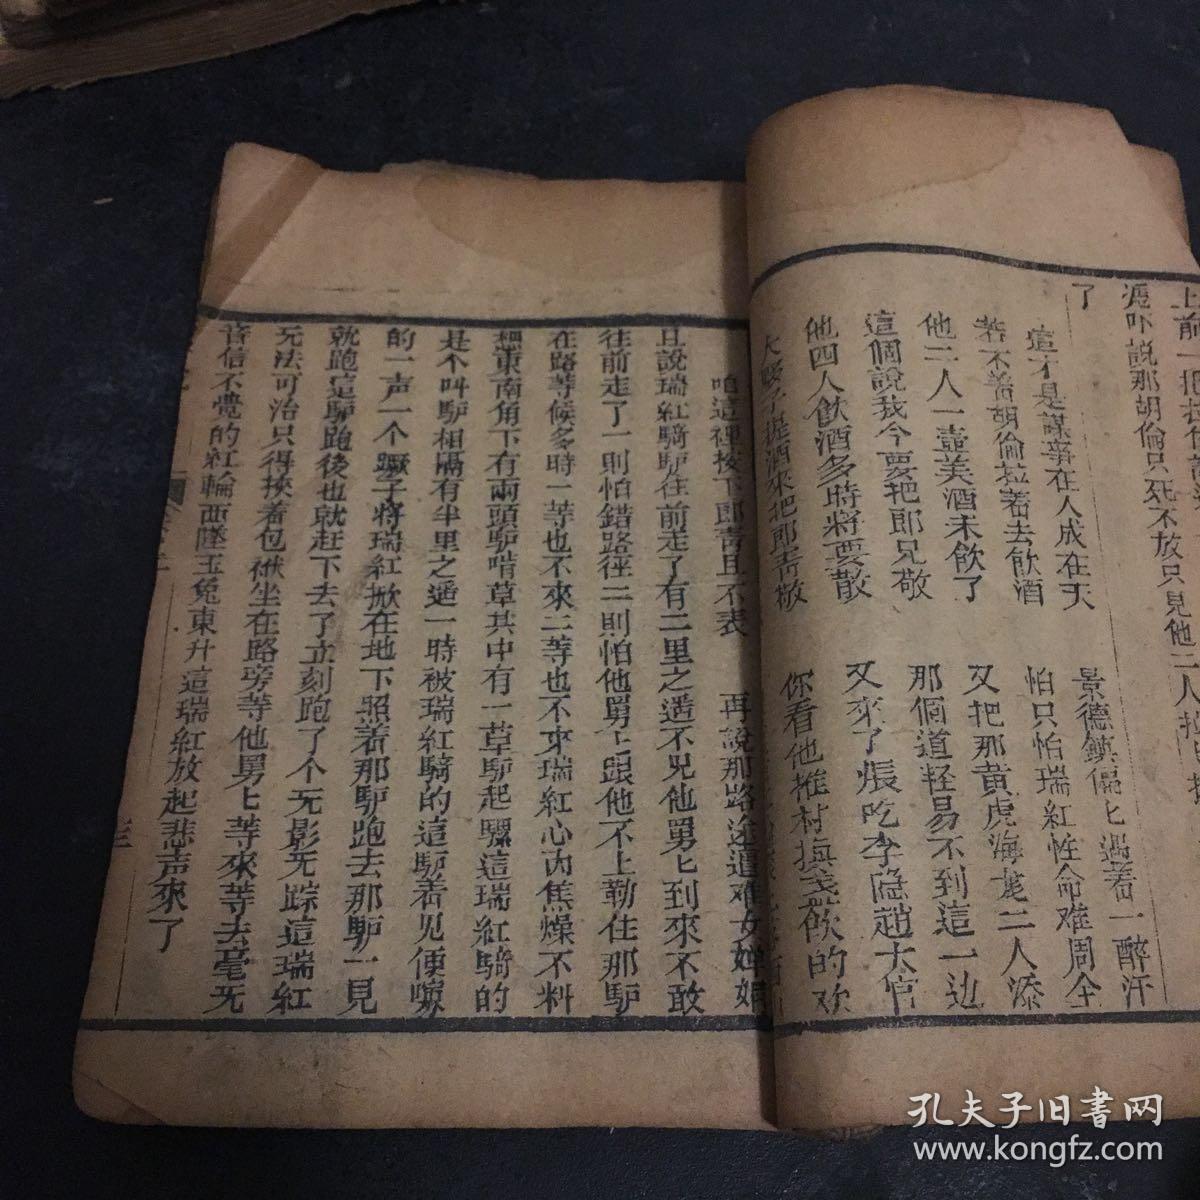 上前一把
说那胡倫只死不放只見他二人
了
這不是謀事在人成在天
景德鎮偪匕遇着一醉汗
若不善胡倫拉着去飲酒
怕只怕瑞紅性命难周全
他二人一壺美酒未飲了
又把那黄虎海龙二人添
這個說我今要把郎兄敬
那個道軽易不到這一边
他四人飲酒多時將要散
又來了張吃李隐趙大信
酒來把郎青敬
你看他推村撫盏飲的欢
咱這裡按下郎青且不表
再說那路途遭难女婵娟
且說瑞紅騎驴往前走了有二里之遥不見他舅匕到來不敢
往前走了一則怕錯路徑二則怕他舅匕跟他不上勒住那驴
在路等候多時一等也不來二等也不來瑞紅心内焦燥不料
東南角下有兩頭驴啃草其中有一草驴起騾這瑞紅騎的
是个叫驴相隔有半里之遥一時被瑞紅騎的這驴看見便嚎
的一声一个蹶子將瑞紅掀在地下照着那驴跑去那驴一見
就跑這驴跑後也就赶下去了立刻跑了个无影无踪這瑞紅
无法可治只得挾着包袱坐在路旁等他舅匕等來等去毫无
音信不覺的紅輪西墜玉兔東升這瑞紅放起悲声來了
孔夫子旧書网
www.kongfz.com